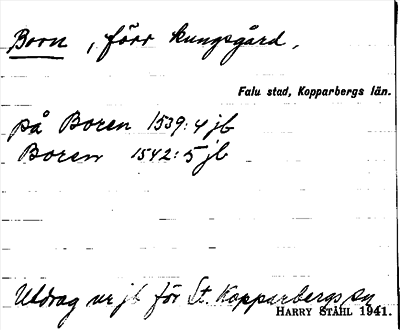 Born, förr kungsgård.
Falu stad, Kopparbergs län.
på Boren 1539:4 jb
Boren 1542:5 jb
Utdrag ur jb för St. Kopparbergs sn
HARRY STÅHL 1941.